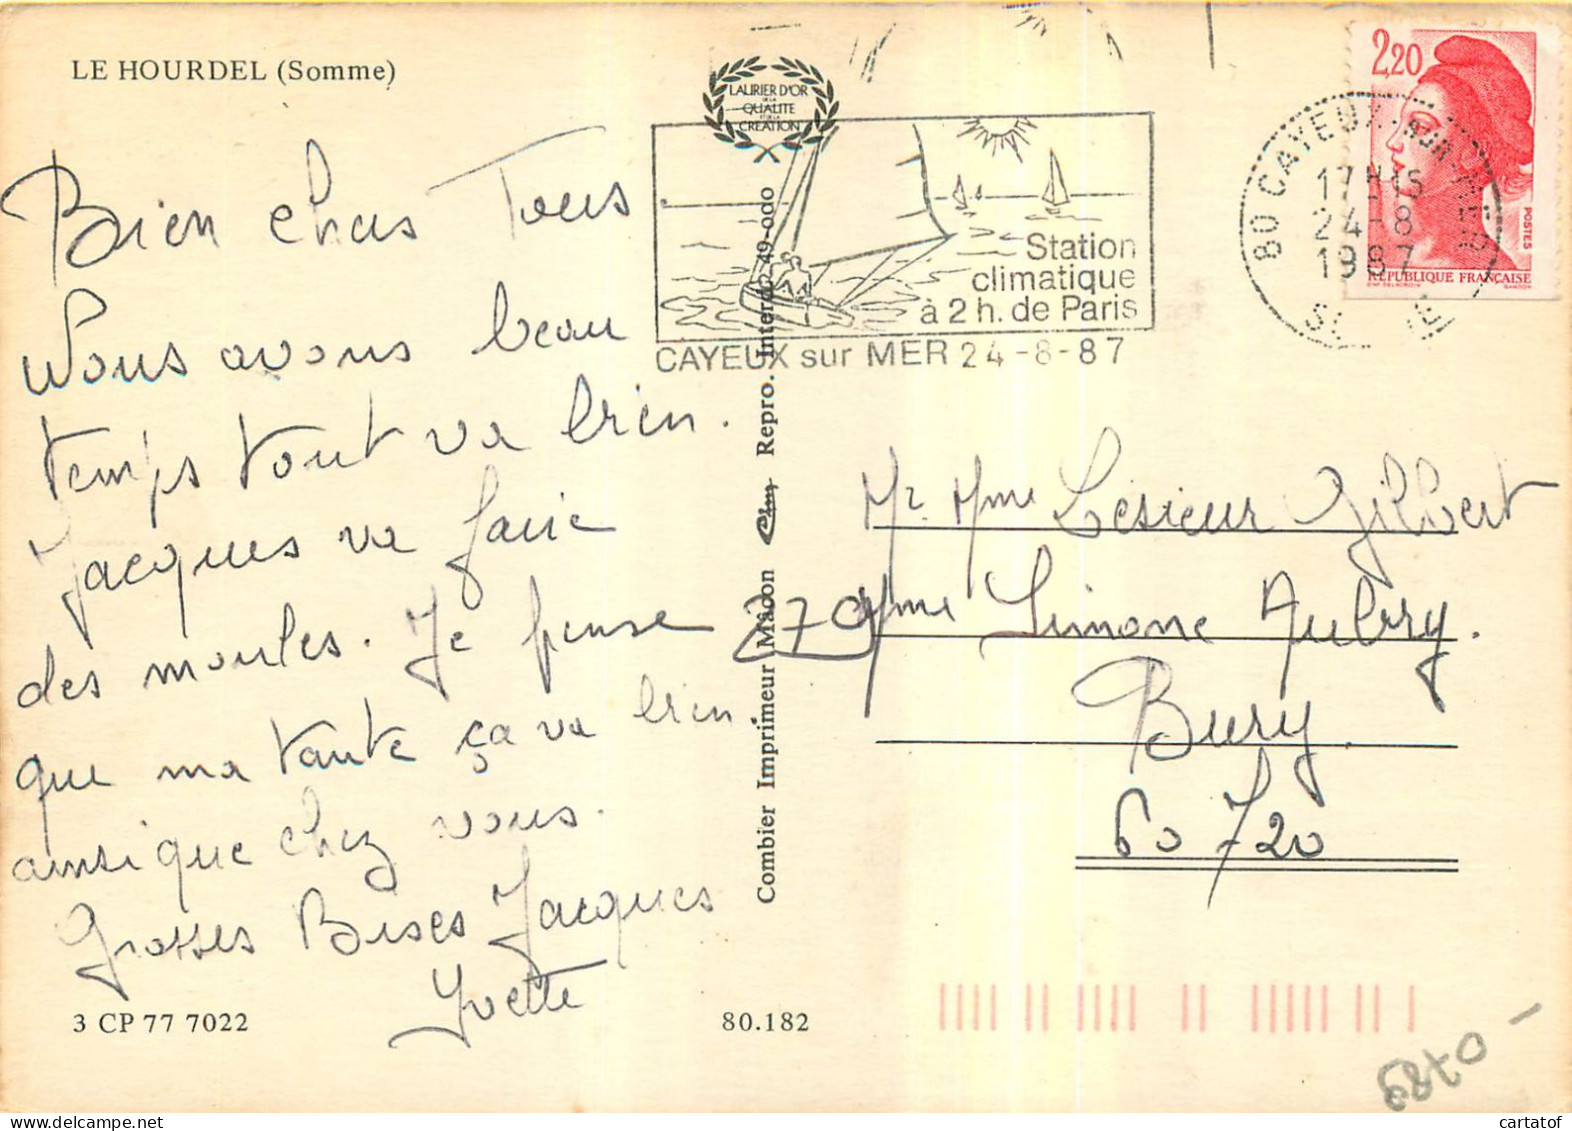 LE HOURDEL (Somme)
Bien chers Tous.
Nous avons beau
temps tout va bien.
Jacques va faire
des moules. Je pense
que ma tante ça va bien
ainsi que chez vous.
Grosses Bises Jacques
Yvette
3 CP 77 7022
80.182
LAURIER D'OR
DE LA
QUALITE
ET DE LA
CREATION
Station
climatique
à 2 h. de Paris
CAYEUX sur MER 24-8-87
Combier Imprimeur Mâcon Cim Repro. Interd. 49-000
80 CAYEUX-SUR-MER
17H15
24-8
1987
2,20
POSTES
REPUBLIQUE FRANÇAISE
Mr Mme Lesieur Gilbert
279
Mme Simone Aubry.
Bury.
60720
cartatof